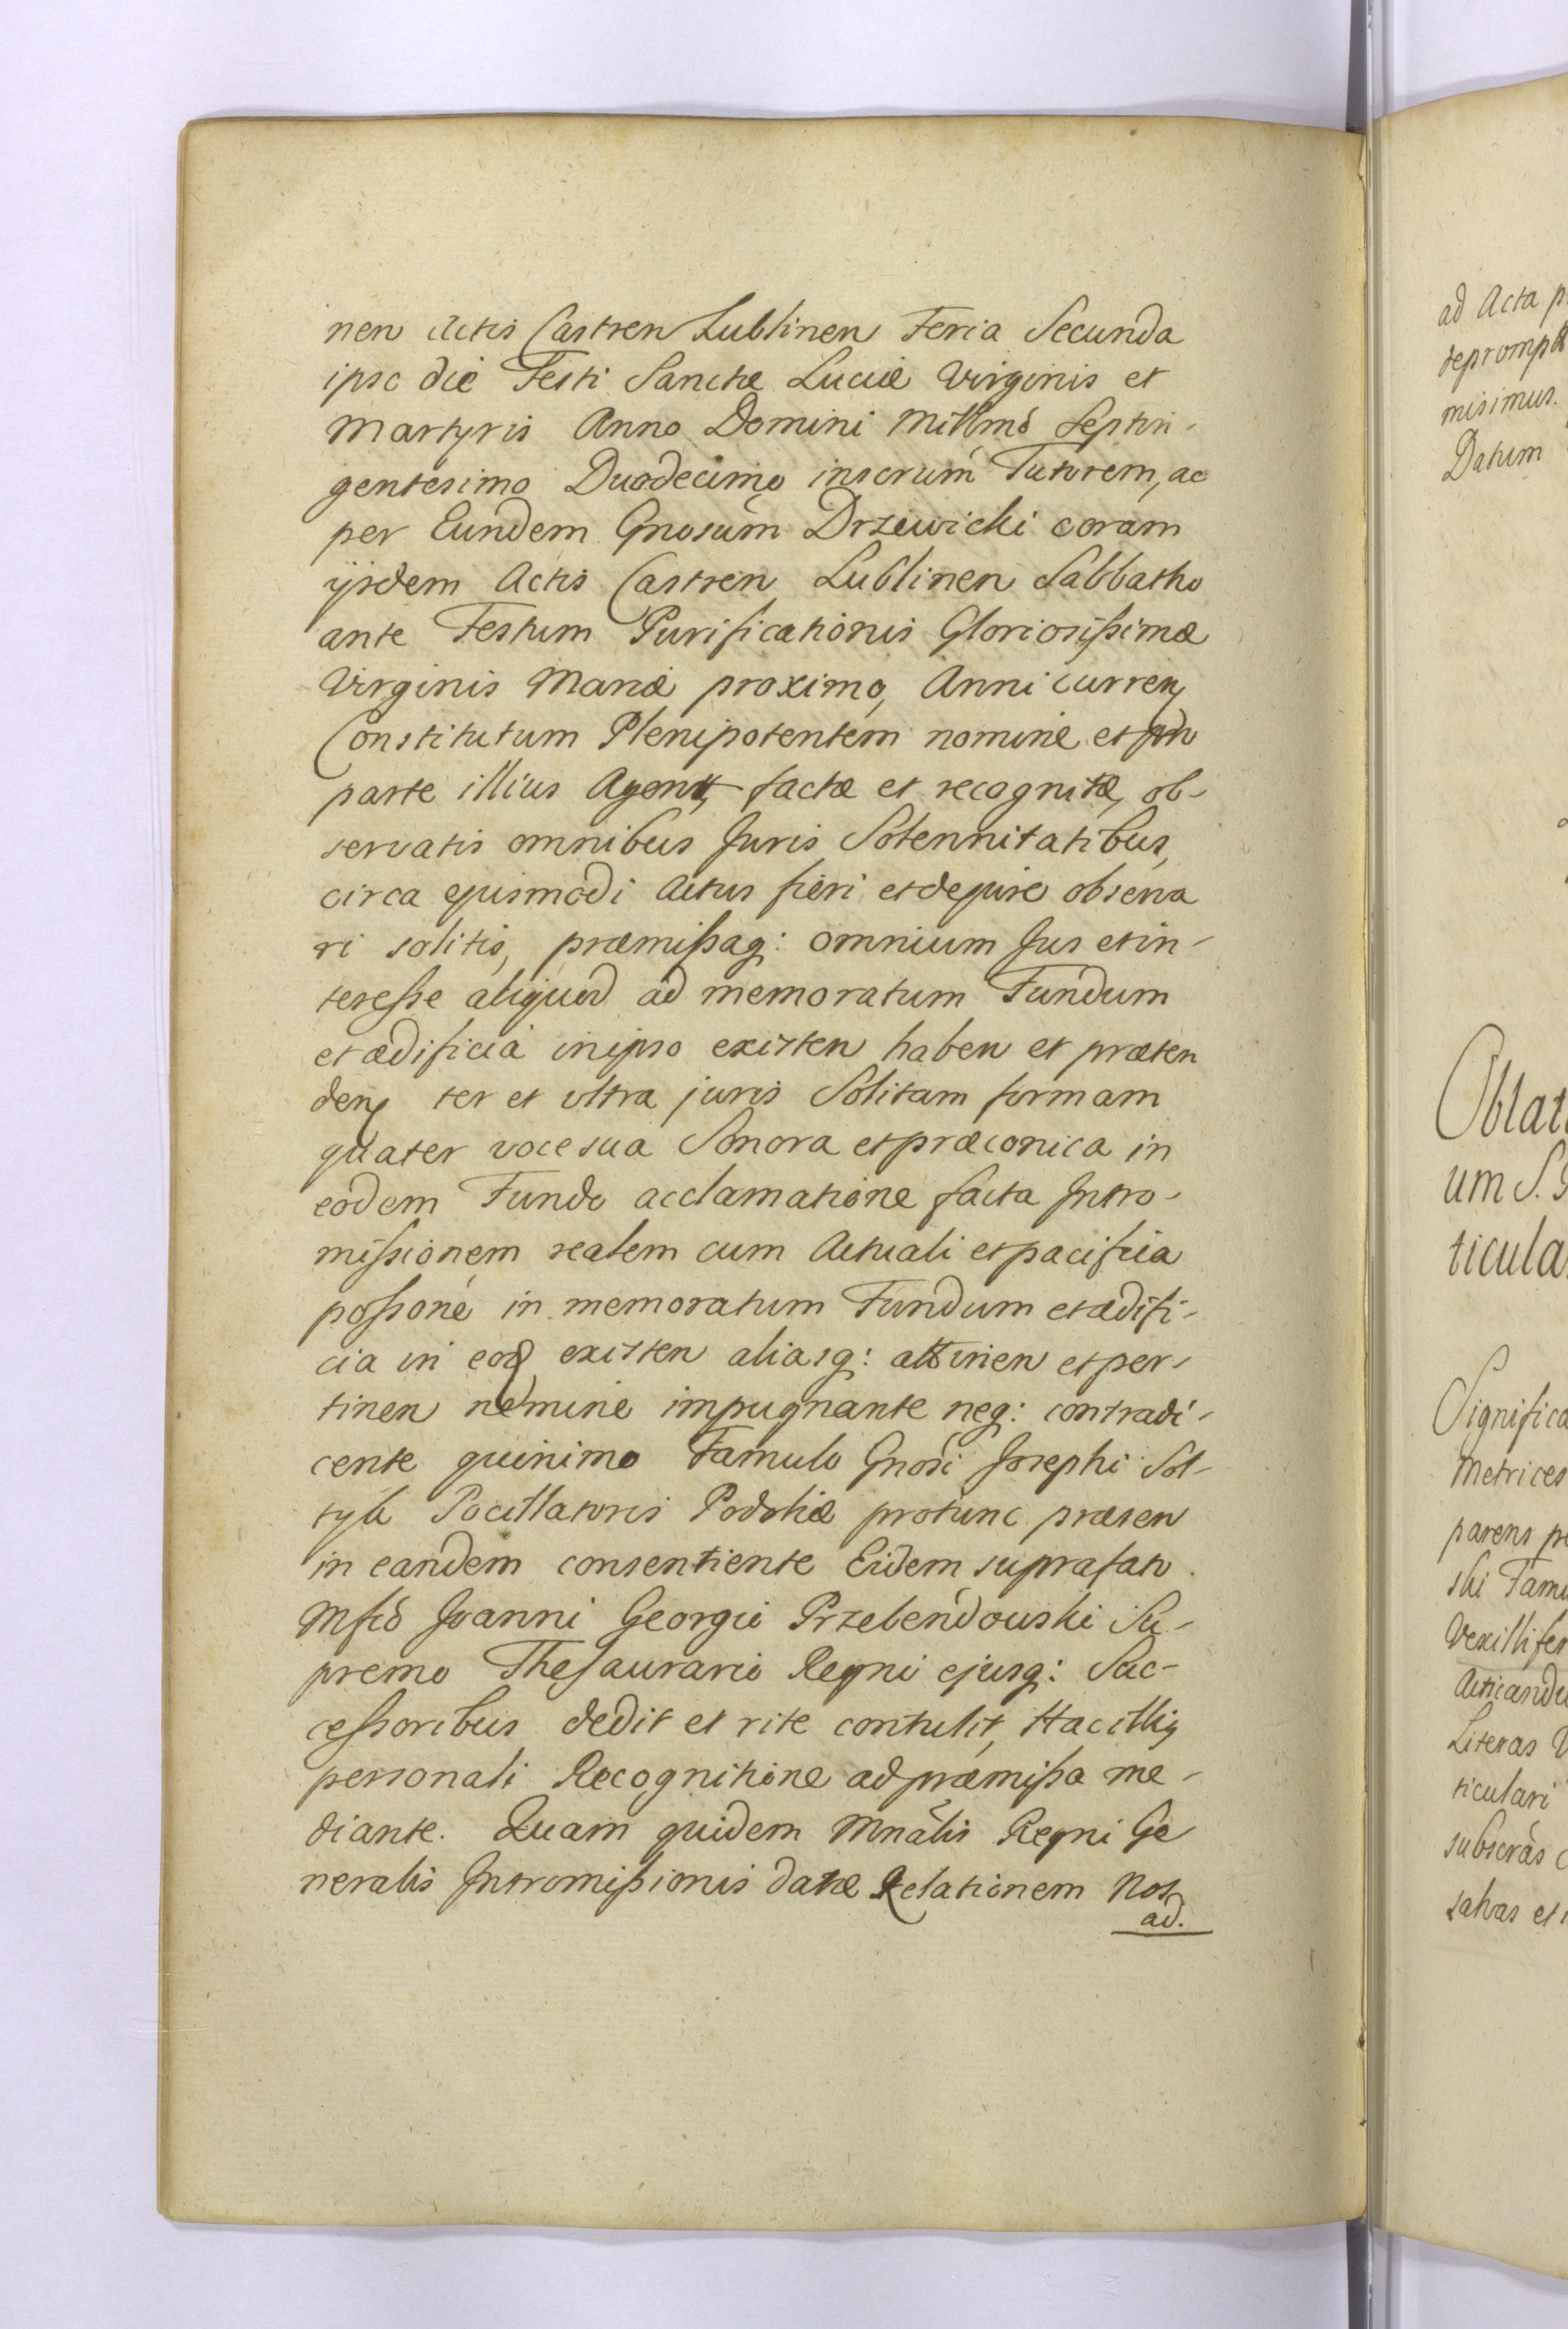 nen Actis Castren Lublinen Feria Secunda
ipso die Festi Sanctæ Luciæ Virginis et
Martyris Anno Domini Millmo Septin-
gentesimo Duodecimo inscrum Tutorem, ac
per Eundem Gnosum Drzewicki coram
ijsdem Actis Castren Lublinen Sabbatho
ante Festum Purificationis Gloriosissimæ
Virginis Mariæ proximo, Anni curren
Constitutum Plenipotentem nomine et
parte illius Agent, factæ et recognitæ, ob-
servatis omnibus Juris Solennitatibus,
circa ejusmodi Actus fieri et de jure observa
ri solitis, præmissaq: omnium Jus et in-
teresse aliquod ad memoratum Fundum
et ædificia in ipso existen haben et præten
den ter et ultra juris Solitam formam
quater voce sua Sonora et præconica in
eodem Fundo acclamatione facta Intro-
missionem realem cum Actuali et pacifica
possone in memoratum Fundum et ædifi-
cia in eod existen aliasq: attinen et per-
tinen nemine impugnante neq: contradi-
cente quinimo Famulo Gnosi Josephi Sol-
tyk Pocillatoris Podoliæ protunc præsen
in eandem consentiente Eidem suprafato
Mfco Joanni Georgio Przebendowski Su-
premo Thesaurario Regni ejusq: Suc-
cessoribus dedit et rite contulit, Hac illius
personali Recognitione ad præmissa me-
diante. Quam quidem Mnālis Regni Ge
neralis Intromissionis datæ Relationem Nos
ad.
ad Acta
misimus.
Datum
um S.
Metrices
parens
ski
Literas
ticulari
subscras
salvas et